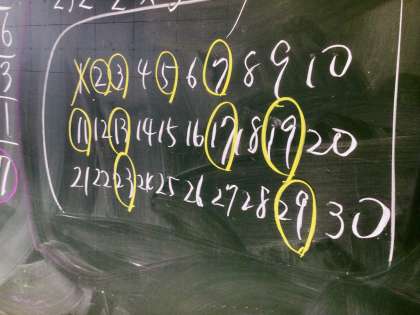 6
3
1
1 2 3 4 5 6 7 8 9 10
11 12 13 14 15 16 17 18 19 20
21 22 23 24 25 26 27 28 29 30